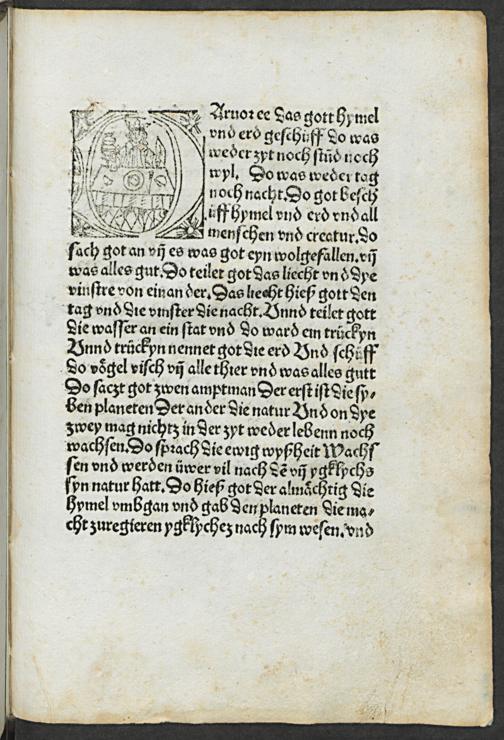 Aruor ee das gott hymel
vnd erd geschuff do was
weder zyt noch stūd noch
wyl. Do was weder tag
noch nacht. Do got besch
uff hymel vnd erd vnd all
menschen vnd creatur. do
sach got an vn̄ es was got eyn wolgefallen. vn̄
was alles gut. Do teilet got das liecht vnd dye
vinstre von ein ander. Das liecht hieß gott den
tag vnd die vinster die nacht. Vnnd teilet gott
die wasser an ein stat vnd do ward ein trückyn
Vnnd trückyn nennet got die erd Vnd schüff
do vögel visch vn̄ alle thier vnd was alles gutt
Do saczt got zwen amptman Der erst ist die sy-
ben planeten Der an der die natur Vnd on dye
zwey mag nichtz in der zyt weder lebenn noch
wachsen. Do sprach die ewig wyßheit Wachs
sen vnd werden üwer vil nach dē vn̄ ygklychs
syn natur hatt. Do hieß got der almächtig die
hymel vmbgan vnd gab den planeten die ma-
cht zuregieren ygklychez nach sym wesen. vnd